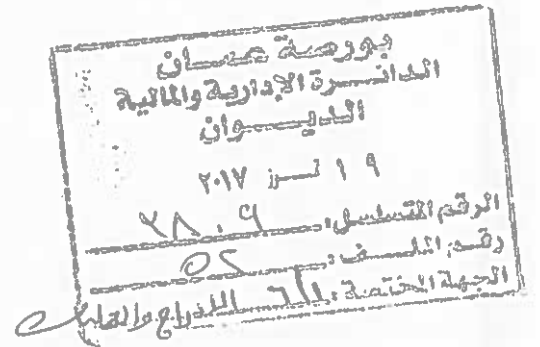 بورصة عمان
الدائرة الإدارية والمالية
الديوان
١٩ تموز ٢٠١٧
الرقم المتسلسل:
رقم الملف:
الجهة المختصة: الإدراج